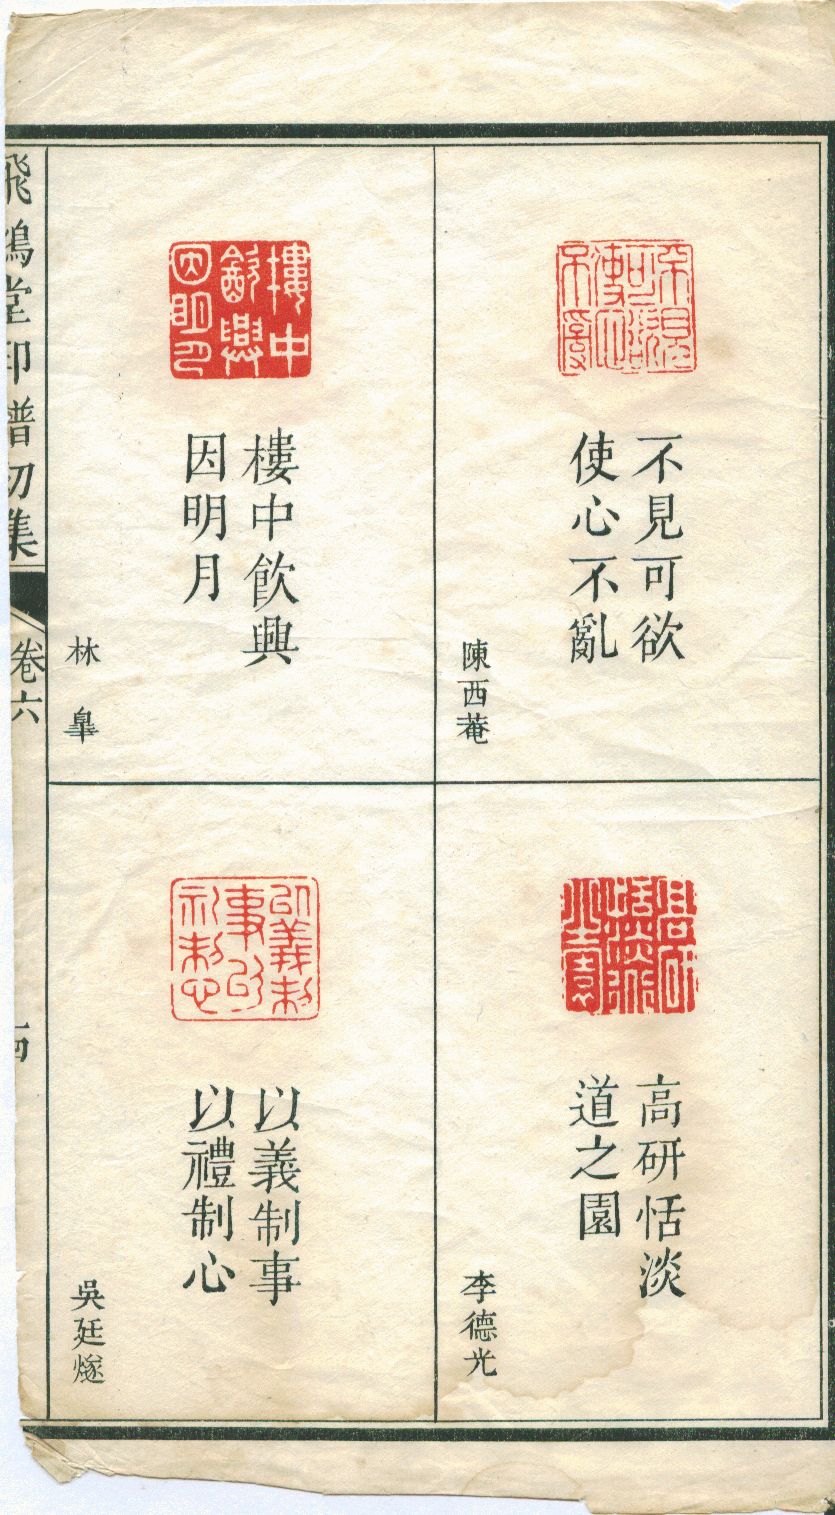 不見可欲
使心不亂
陳西菴
高研恬淡
道之園
李德光
樓中飲興
因明月
林皐
以義制事
以禮制心
吳廷燧
飛鴻堂印譜初集
卷六